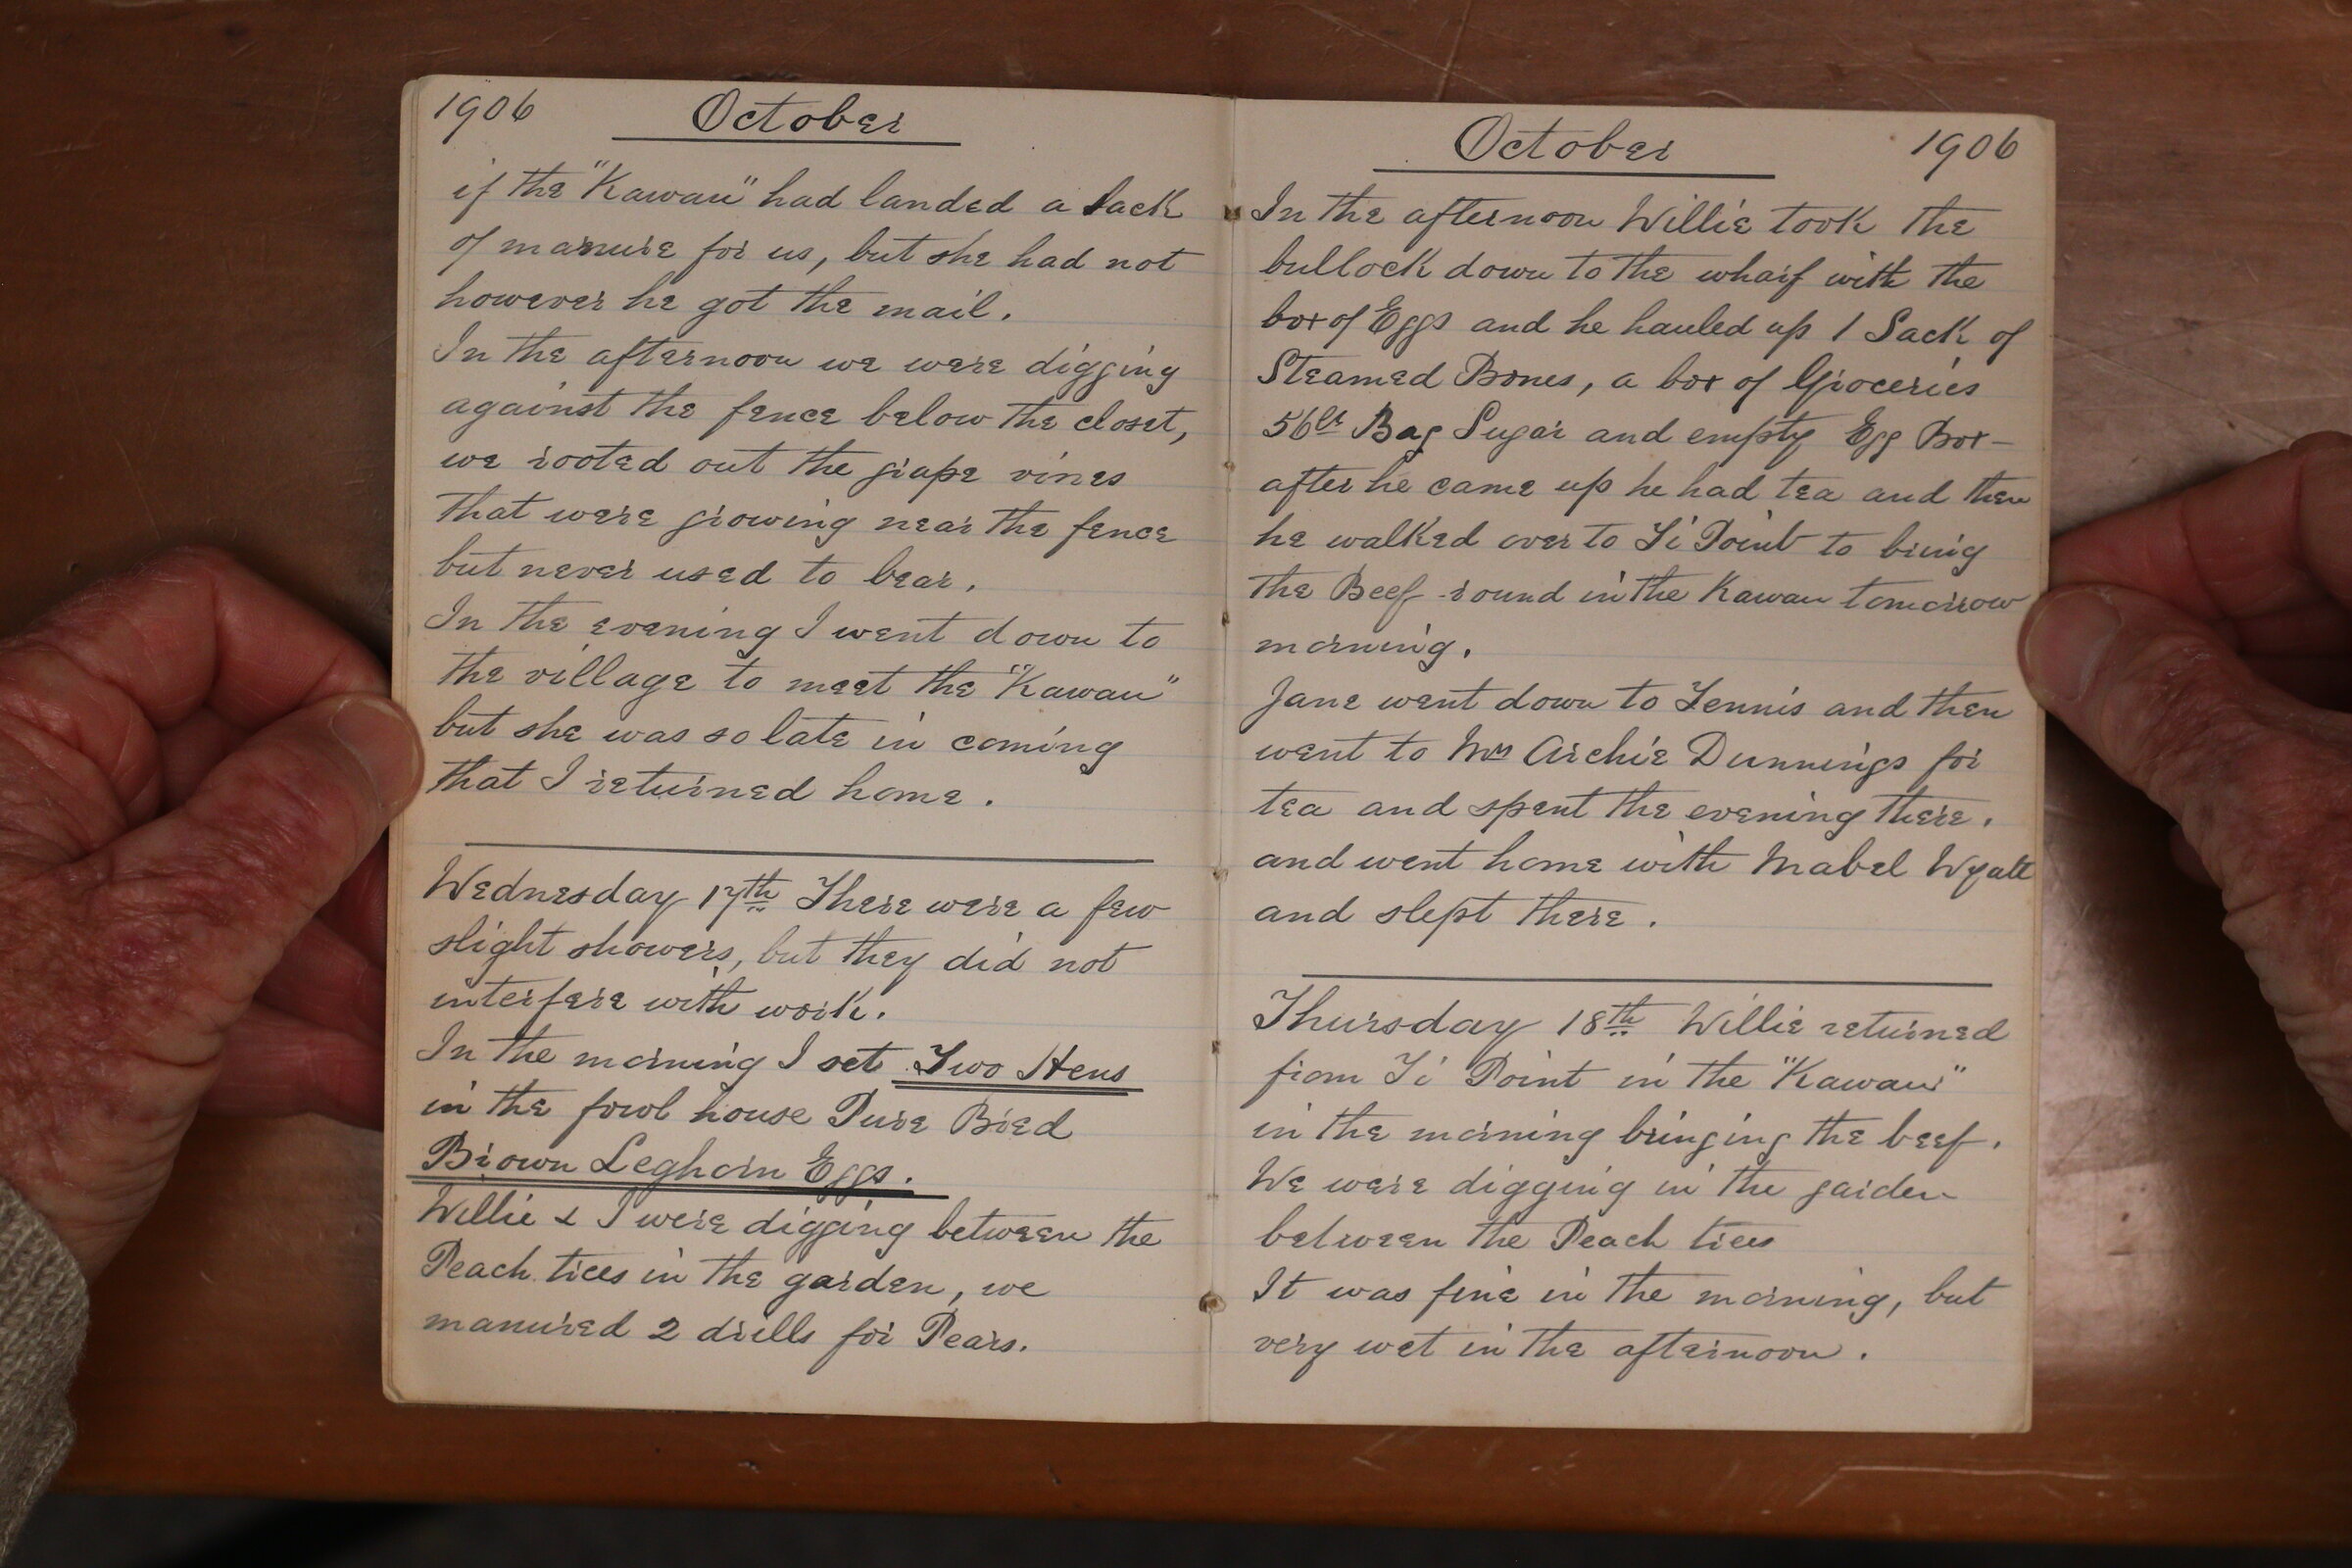 1906 October
if the "Kawau" had landed a Sack
of manure for us, but she had not
however he got the mail.
In the afternoon we were digging
against the fence below the closet,
we rooted out the grape vines
that were growing near the fence
but never used to bear.
In the evening I went down to
the village to meet the "Kawau"
but she was so late in coming
that I returned home.
Wednesday 17th There were a few
slight showers, but they did not
interfere with work.
In the morning I set Two Hens
in the fowl house Pure Bred
Brown Leghorn Eggs.
Willie & I were digging between the
Peach trees in the garden, we
manured 2 drills for Pears.
October 1906
In the afternoon Willie took the
bullock down to the wharf with the
box of Eggs and he hauled up 1 Sack of
Steamed Bones, a box of Groceries
56lb Bag Sugar and empty Egg Box-
after he came up he had tea and then
he walked over to Ti Point to bring
the Beef round in the Kawau tomorrow
morning.
Jane went down to Tennis and then
went to Mrs Archie Dunnings for
tea and spent the evening there.
and went home with Mabel Wyatt
and slept there.
Thursday 18th Willie returned
from Ti Point in the "Kawau"
in the morning bringing the beef.
We were digging in the garden
between the Peach trees
It was fine in the morning, but
very wet in the afternoon.